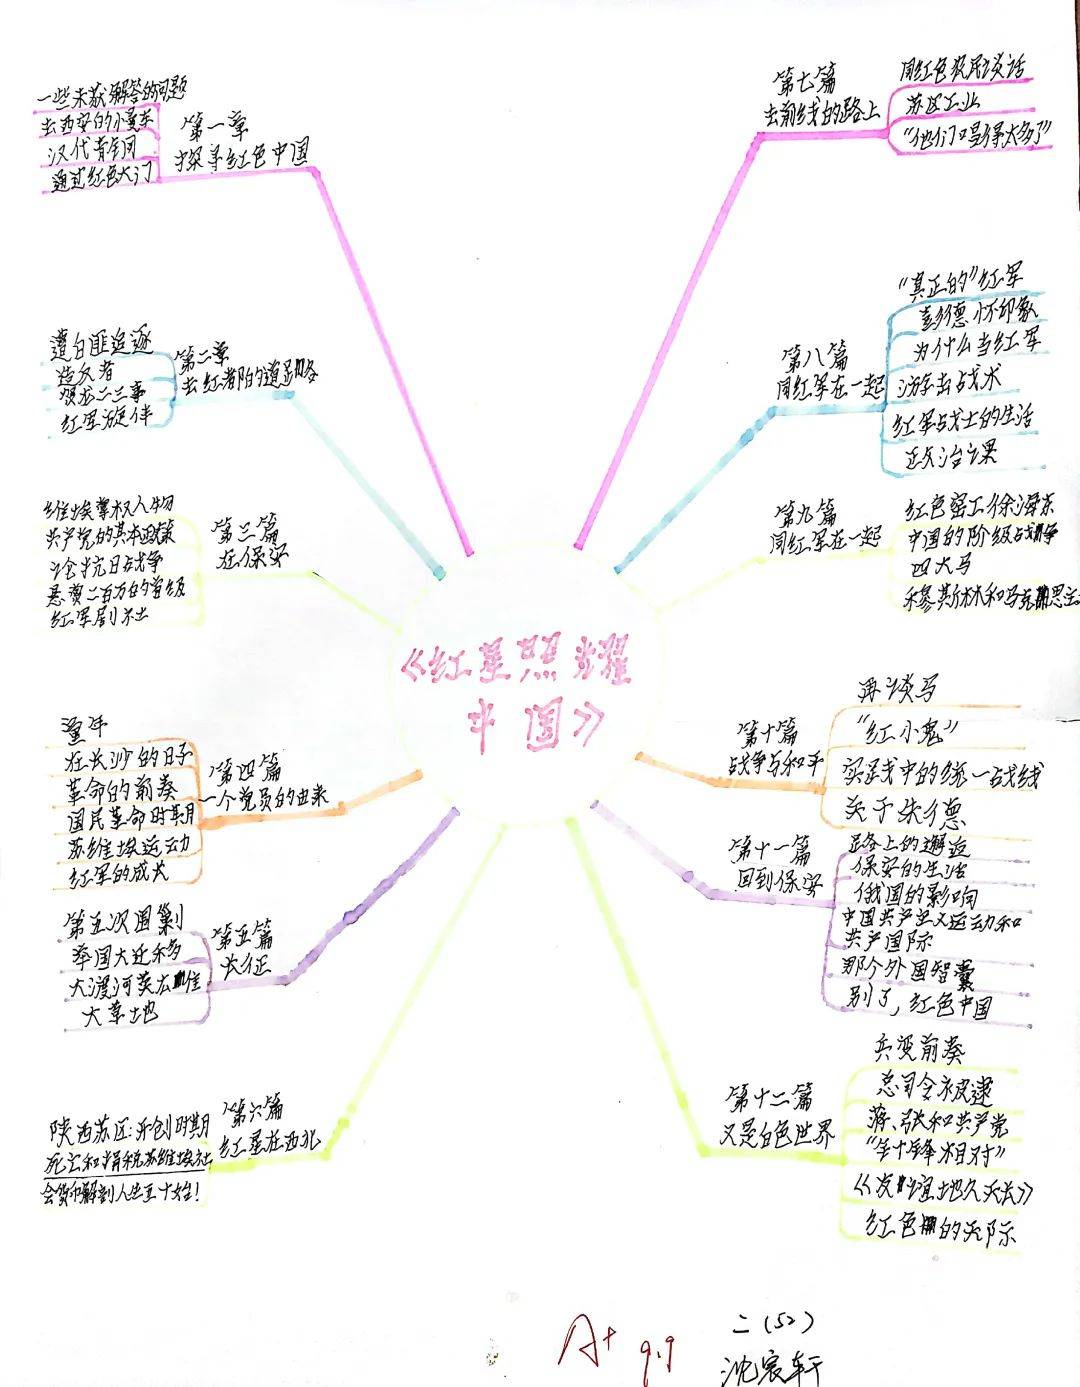 《红星照耀
中国》
第一章
探寻红色中国
一些未获解答的问题
去西安的慢车
汉代青铜
通过红色大门
第二章
去红都的道路
遭白匪追逐
造反者
贺龙二三事
红军旅伴
第三篇
在保安
苏维埃掌权人物
共产党的基本政策
论抗日战争
悬赏二百万的首级
红军剧社
第四篇
一个党员的由来
童年
在长沙的日子
革命的前奏
国民革命时期
苏维埃运动
红军的成长
第五篇
长征
第五次围剿
举国大迁移
大渡河英雄
大草地
第六篇
红星在西北
陕西苏区:开创时期
死亡和捐税苏维埃社
会货币解剖人生五十始!
第七篇
去前线的路上
同红色农民谈话
苏区工业
“他们唱得太多了”
第八篇
同红军在一起
“真正的”红军
彭德怀印象
为什么当红军
游击战术
红军战士的生活
政治课
第九篇
同红军在一起
红色窑工徐海东
中国的阶级战争
四大马
穆斯林和马克思主
第十篇
战争与和平
再谈马
“红小鬼”
实践中的统一战线
关于朱德
第十一篇
回到保安
路上的邂逅
保安的生活
俄国的影响
中国共产主义运动和
共产国际
那个外国智囊
别了,红色中国
第十二篇
又是白色世界
兵变前奏
总司令被逮
蒋、张和共产党
“针锋相对”
《友谊地久天长》
红色的天际
A+ 9.9
二(52)
沈宸轩